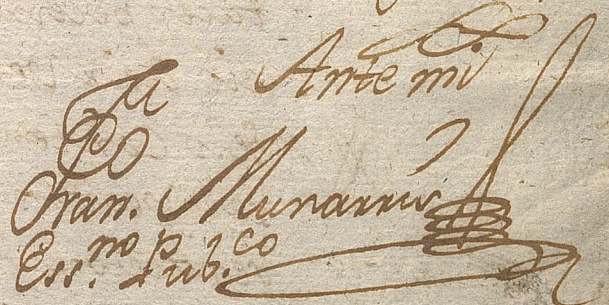 Ante mi
Fran.co Munarris
Ess.no pub.co